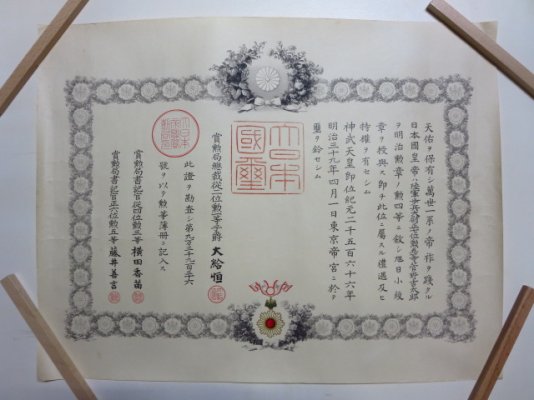 天佑ヲ保有シ萬世一系ノ帝祚ヲ踐タル
日本國皇帝ハ陸軍歩兵
ヲ明治勲章ノ勲四等ニ敍シ旭日小綬
章ヲ授與ス即チ此位ニ屬スル禮遇及ヒ
特權ヲ有セシム
神武天皇即位紀元二千五百六十六年
明治三十九年四月一日東京帝宮ニ於テ
璽ヲ鈐セシム
大日本國璽
賞勲局総裁従二位勲一等子爵 大給恒
此證ヲ勘査シ第九万三千九百三十六
號ヲ以テ勲等簿冊ニ記入ス
賞勲局書記官従四位勲三等 横田香苗
賞勲局書記官正六位勲五等 藤井善言